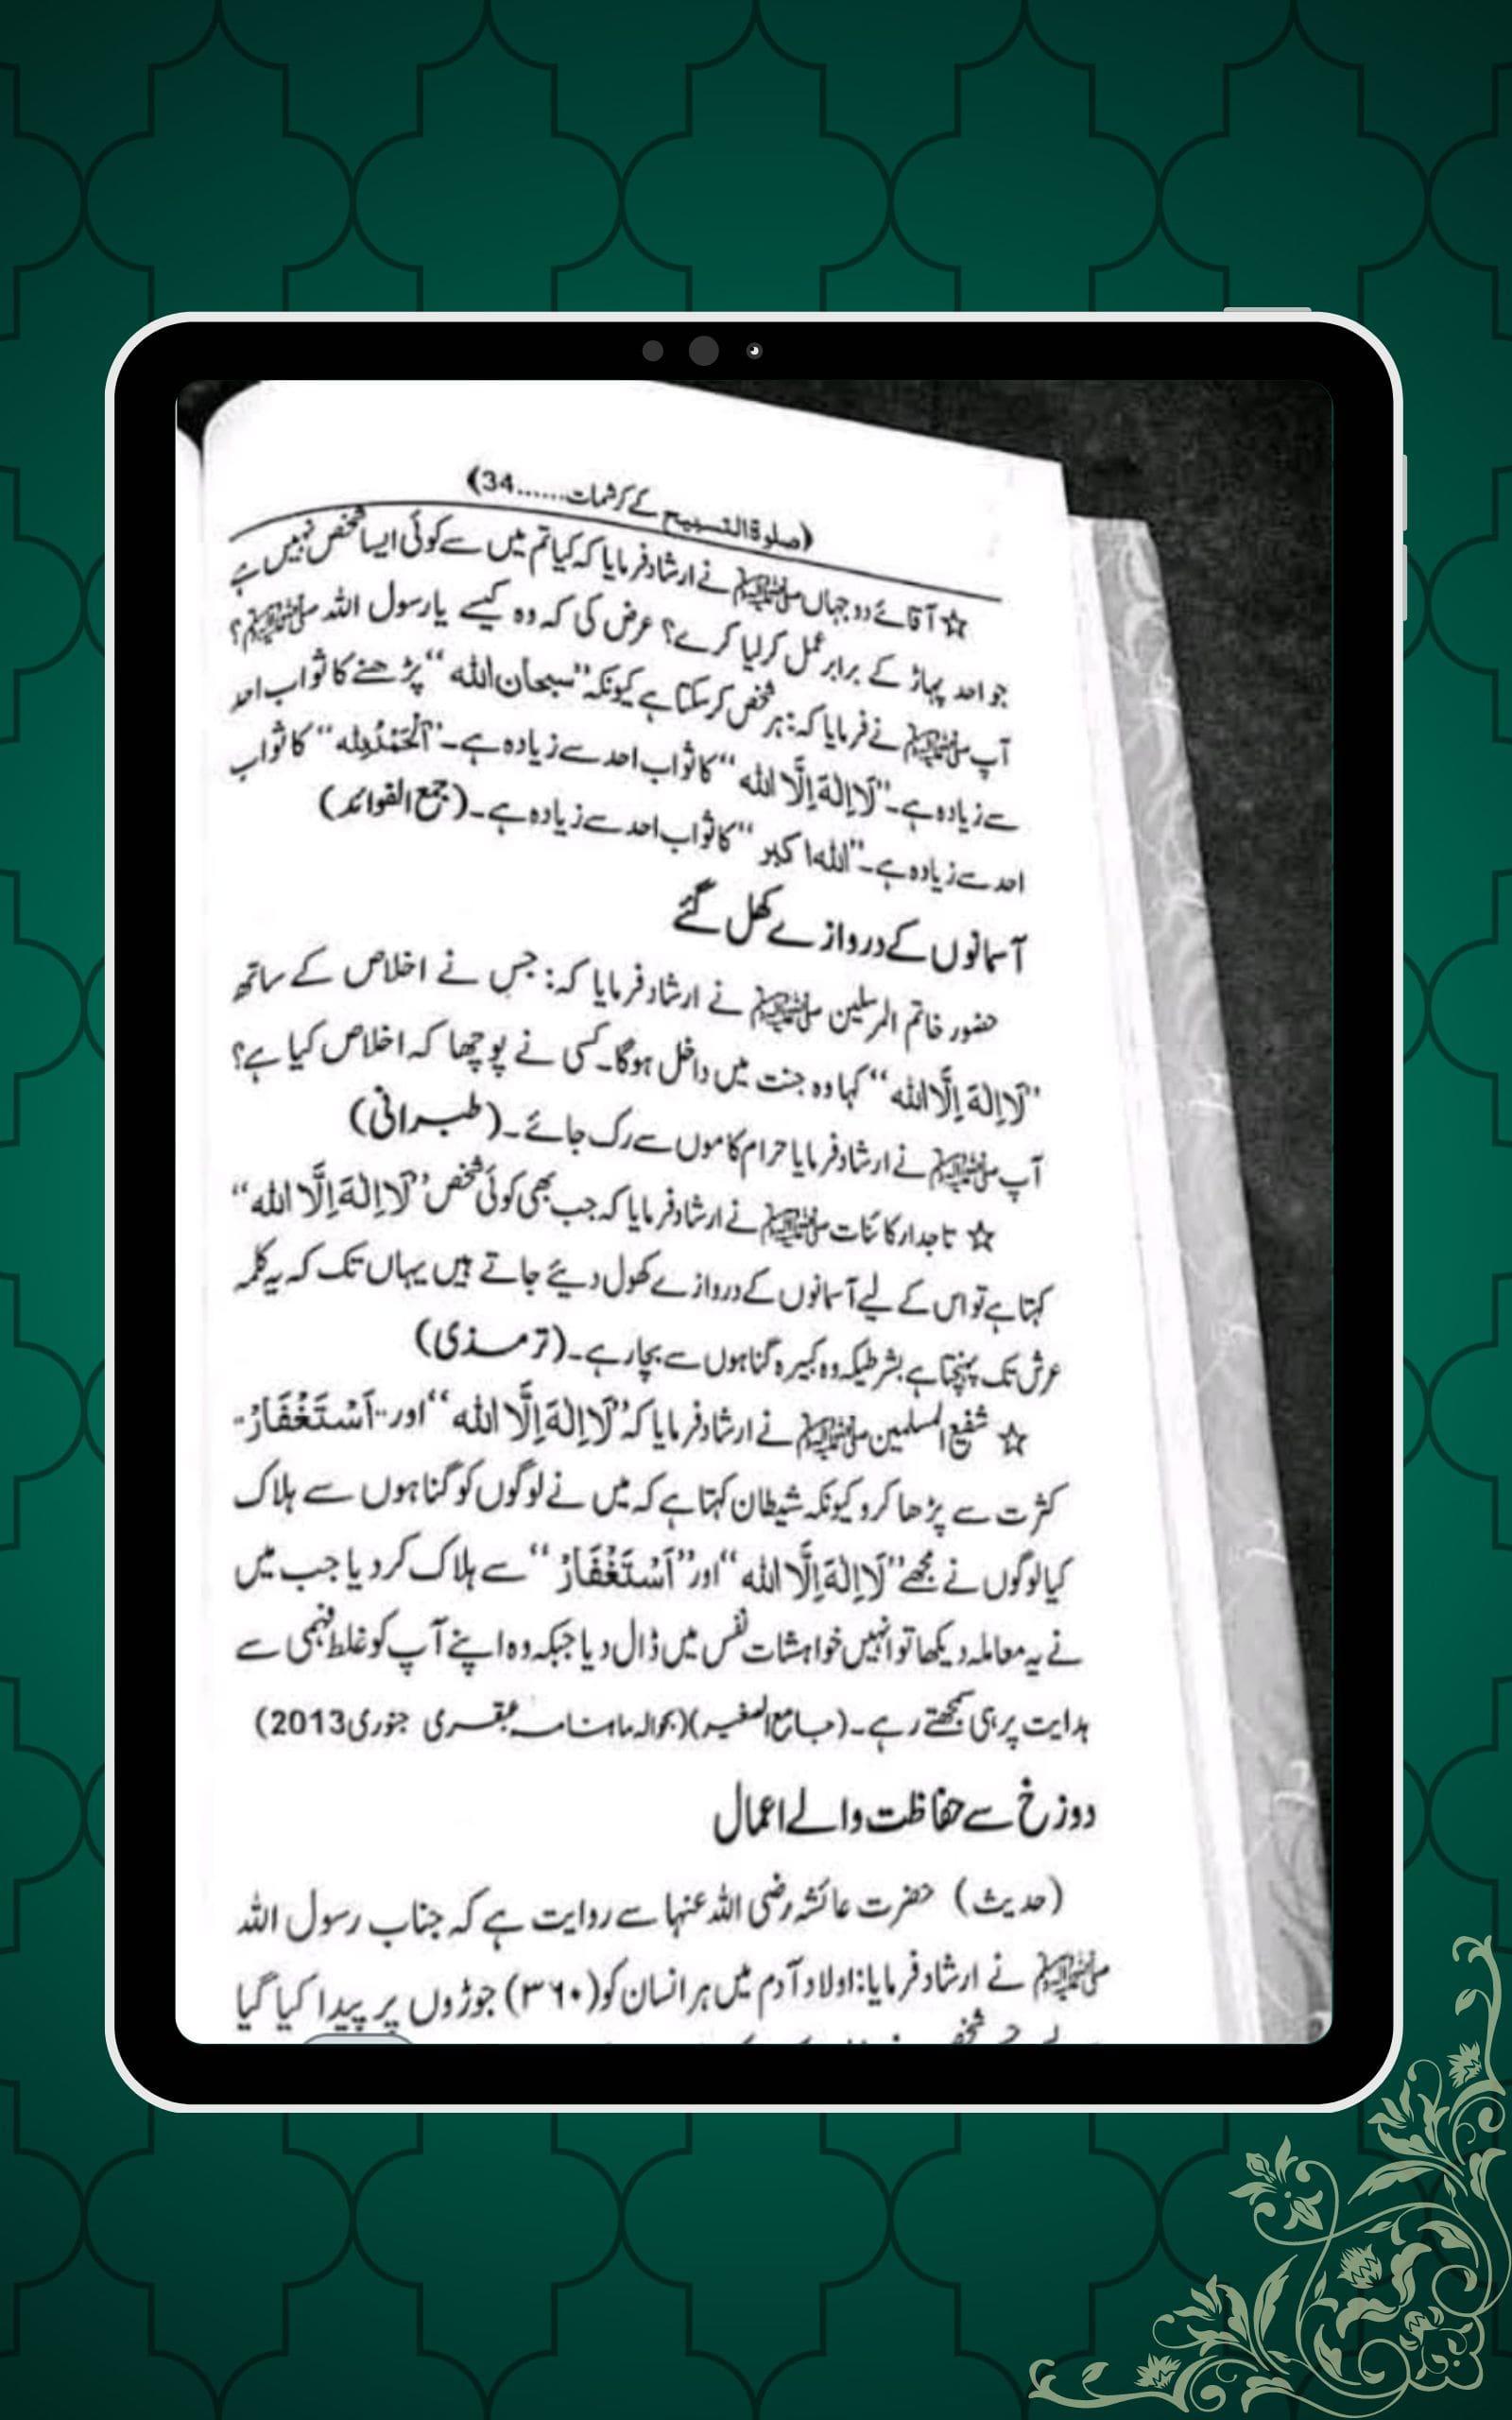 (صلوۃ التسبیح کے کرشمات......34)
☆ آقائے دو جہاں ﷺ نے ارشاد فرمایا کہ کیا تم میں سے کوئی ایسا شخص نہیں ہے
جو احد پہاڑ کے برابر عمل کر لیا کرے؟ عرض کی کہ وہ کیسے یارسول اللہ ﷺ؟
آپ ﷺ نے فرمایا کہ: ہر شخص کر سکتا ہے کیونکہ ”سبحان اللہ“ پڑھنے کا ثواب احد
سے زیادہ ہے۔ ”لَا اِلٰهَ اِلَّا اللہ“ کا ثواب احد سے زیادہ ہے۔ ”اَلْحَمْدُ لِلّٰہ“ کا ثواب
احد سے زیادہ ہے۔ ”اللہ اکبر“ کا ثواب احد سے زیادہ ہے۔ (جمع الفوائد)
آسمانوں کے دروازے کھل گئے
حضور خاتم المرسلین ﷺ نے ارشاد فرمایا کہ: جس نے اخلاص کے ساتھ
”لَا اِلٰهَ اِلَّا اللہ“ کہا وہ جنت میں داخل ہوگا۔ کسی نے پوچھا کہ اخلاص کیا ہے؟
آپ ﷺ نے ارشاد فرمایا حرام کاموں سے رک جائے۔ (طبرانی)
☆ تاجدار کائنات ﷺ نے ارشاد فرمایا کہ جب بھی کوئی شخص ”لَا اِلٰهَ اِلَّا اللہ“
کہتا ہے تو اس کے لیے آسمانوں کے دروازے کھول دیئے جاتے ہیں یہاں تک کہ یہ کلمہ
عرش تک پہنچتا ہے بشرطیکہ وہ کبیرہ گناہوں سے بچا رہے۔ (ترمذی)
☆ شفیع المسلمین ﷺ نے ارشاد فرمایا کہ ”لَا اِلٰهَ اِلَّا اللہ“ اور ”اَسْتَغْفَارْ“
کثرت سے پڑھا کرو کیونکہ شیطان کہتا ہے کہ میں نے لوگوں کو گناہوں سے ہلاک
کیا لوگوں نے مجھے ”لَا اِلٰهَ اِلَّا اللہ“ اور ”اَسْتَغْفَارْ“ سے ہلاک کر دیا جب میں
نے یہ معاملہ دیکھا تو انہیں خواہشات نفس میں ڈال دیا جبکہ وہ اپنے آپ کو غلط فہمی سے
ہدایت پر ہی سمجھتے رہے۔ (جامع الصغیر) (بحوالہ ماہنامہ عبقری جنوری 2013)
دوزخ سے حفاظت والے اعمال
(حدیث) حضرت عائشہ رضی اللہ عنہا سے روایت ہے کہ جناب رسول اللہ
ﷺ نے ارشاد فرمایا: اولاد آدم میں ہر انسان کو (۳۶۰) جوڑوں پر پیدا کیا گیا